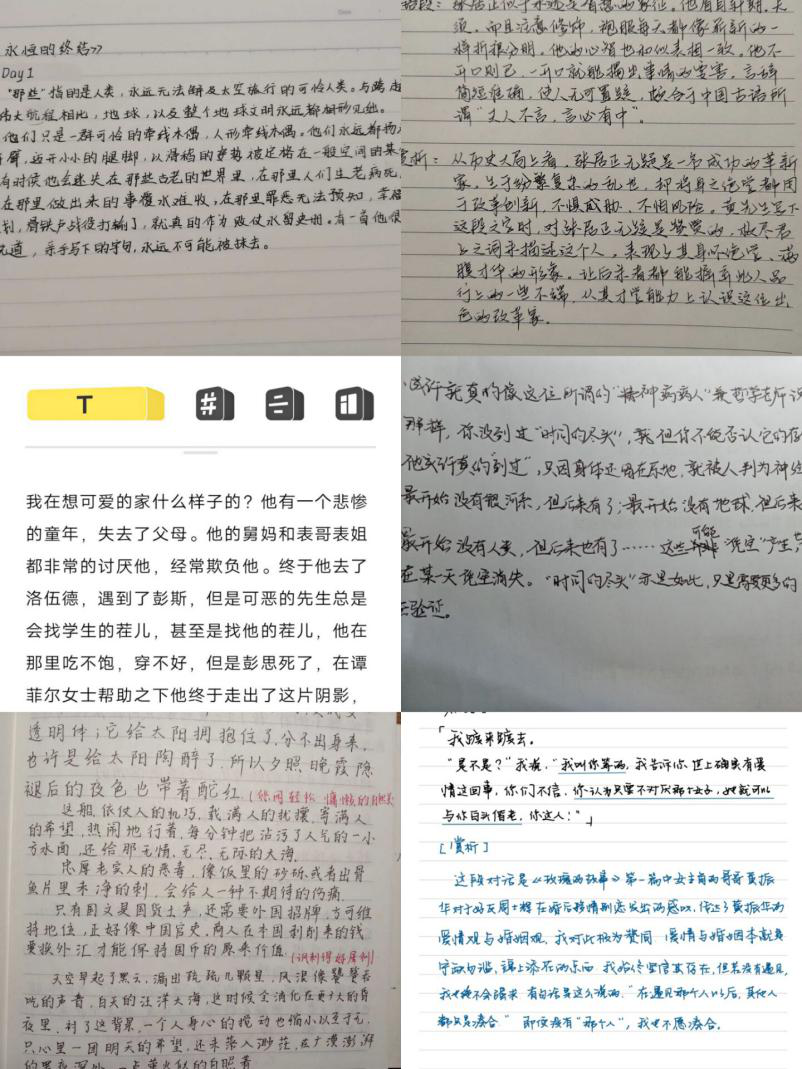 永恒的终结》
Day1
"那些"指的是人类，永远无法触及太空旅行的可怜人类。与跨越
伟大航程相比，地球，以及整个地球文明永远都相形见绌。
他们只是一群可怜的牵线木偶，人形牵线木偶。他们永远都
臂，迈开小小的腿脚，以滑稽的姿势被定格在一般空间的某
有时候他会迷失在那些古老的世界里，在那里人们生老病死
在那里做出来的事覆水难收，在那里罪恶无法预知，幸福
划，滑铁卢战役打输了，就真的作为败仗永留史册。有一首他很
道，亲手写下的字句，永远不可能被抹去。
须。而且注意修饰，袍服每天都像崭新的一
样折痕分明。他的心智也和仪表相一致。他不
开口则已，一开口就能揭出事情的要害，言辞
简短准确，使人无可置疑，颇合于中国古语所
谓"夫人不言，言必有中"。
赏析：从历史大局上看，张居正无疑是一名成功的革新
家。生于纷繁复杂的乱世，却将身之绝学都用
于改革创新，不惧威胁、不怕风险。黄先生写下
这段文字时，对张居正无疑是赞赏的，
之词来描述这个人，表现出其身怀绝学、满
腹才华的形象。让后来者都能摒弃此人品
行上的一些不端，从其才学能力上认识这位出
色的改革家。
T
我在想可爱的家什么样子的？他有一个悲惨
的童年，失去了父母。他的舅妈和表哥表姐
都非常的讨厌他，经常欺负他。终于他去了
洛伍德，遇到了彭斯，但是可恶的先生总是
会找学生的茬儿，甚至是找他的茬儿，他在
那里吃不饱，穿不好，但是彭思死了，在谭
菲尔女士帮助之下他终于走出了这片阴影，
或许就真的像这位所谓的"精神病病人"兼哲学老师说
那样，你没到过"时间的尽头"，但你不能否认它的存
他或许真的"到过"，只因身体还留在原地，就被人判为神经
最开始没有银河系，但后来有了；最开始没有地球，但后来
最开始没有人类，但后来也有了……这些可能"凭空"产生，
在某一天凭空消失。"时间的尽头"亦是如此，只是需要更多的
验证。
透明体；它给太阳拥抱住了，分不出身来，
也许是给太阳陶醉了，所以夕照晚霞隐
褪后的夜色也带着酡红。
这船，依仗人的机巧，载满人的扰攘，寄满人
的希望，热闹地行着，每分钟把沾污了人气的一小
方水面，还给那无情、无尽、无际的大海。
忠厚老实人的恶毒，像饭里的砂砾或者出骨
鱼片里未净的刺，会给人一种不期待的伤痛。
只有国文是国货土产，还需要外国招牌，方可维
持地位，正好像中国官吏，商人在本国剥削来的钱
要换外汇才能保持国币的原来价值（讽刺得好犀利）
天空早起了黑云，漏出疏疏几颗星，风浪像饕餮吞
吃的声音，白天的汪洋大海，这时候全消化在更广大的昏
夜里，衬了这背景，一个人身心的搅动也缩小以至于无，
只心里一团明天的希望，还未落入渺茫，在广漠澎湃
的黑夜深处，一点萤火似的自照着
「我踱来踱去。
"是不是？"我说，"我叫你等的，我告诉你世上确实有爱
情这回事，你们不信，你认为只要不讨厌那个女子，她就可以
与你白头偕老，你这人！"」
[赏析]
这段对话是《玫瑰的故事》第一篇中女主角的哥哥黄振
华对于好友周士辉在婚后移情别恋发出的感叹，传达了黄振华的
爱情观与婚姻观，我对此极为赞同，爱情与婚姻本就是
宁缺勿滥、锦上添花的东西，我始终坚信其存在，但若没有遇见，
我也绝不会强求，有句话是这么说的，"在遇见那个人以后，其他人
都只是凑合"，即使没有"那个人"，我也不愿凑合。